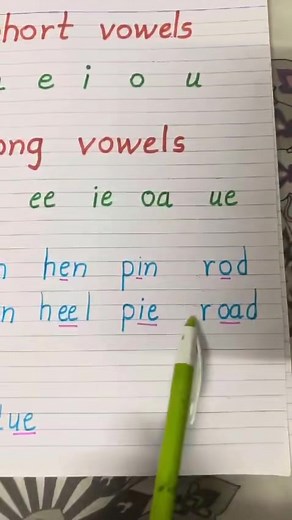 short vowels
e i o u
long vowels
ee ie oa ue
hen pin rod
heel pie road
ue